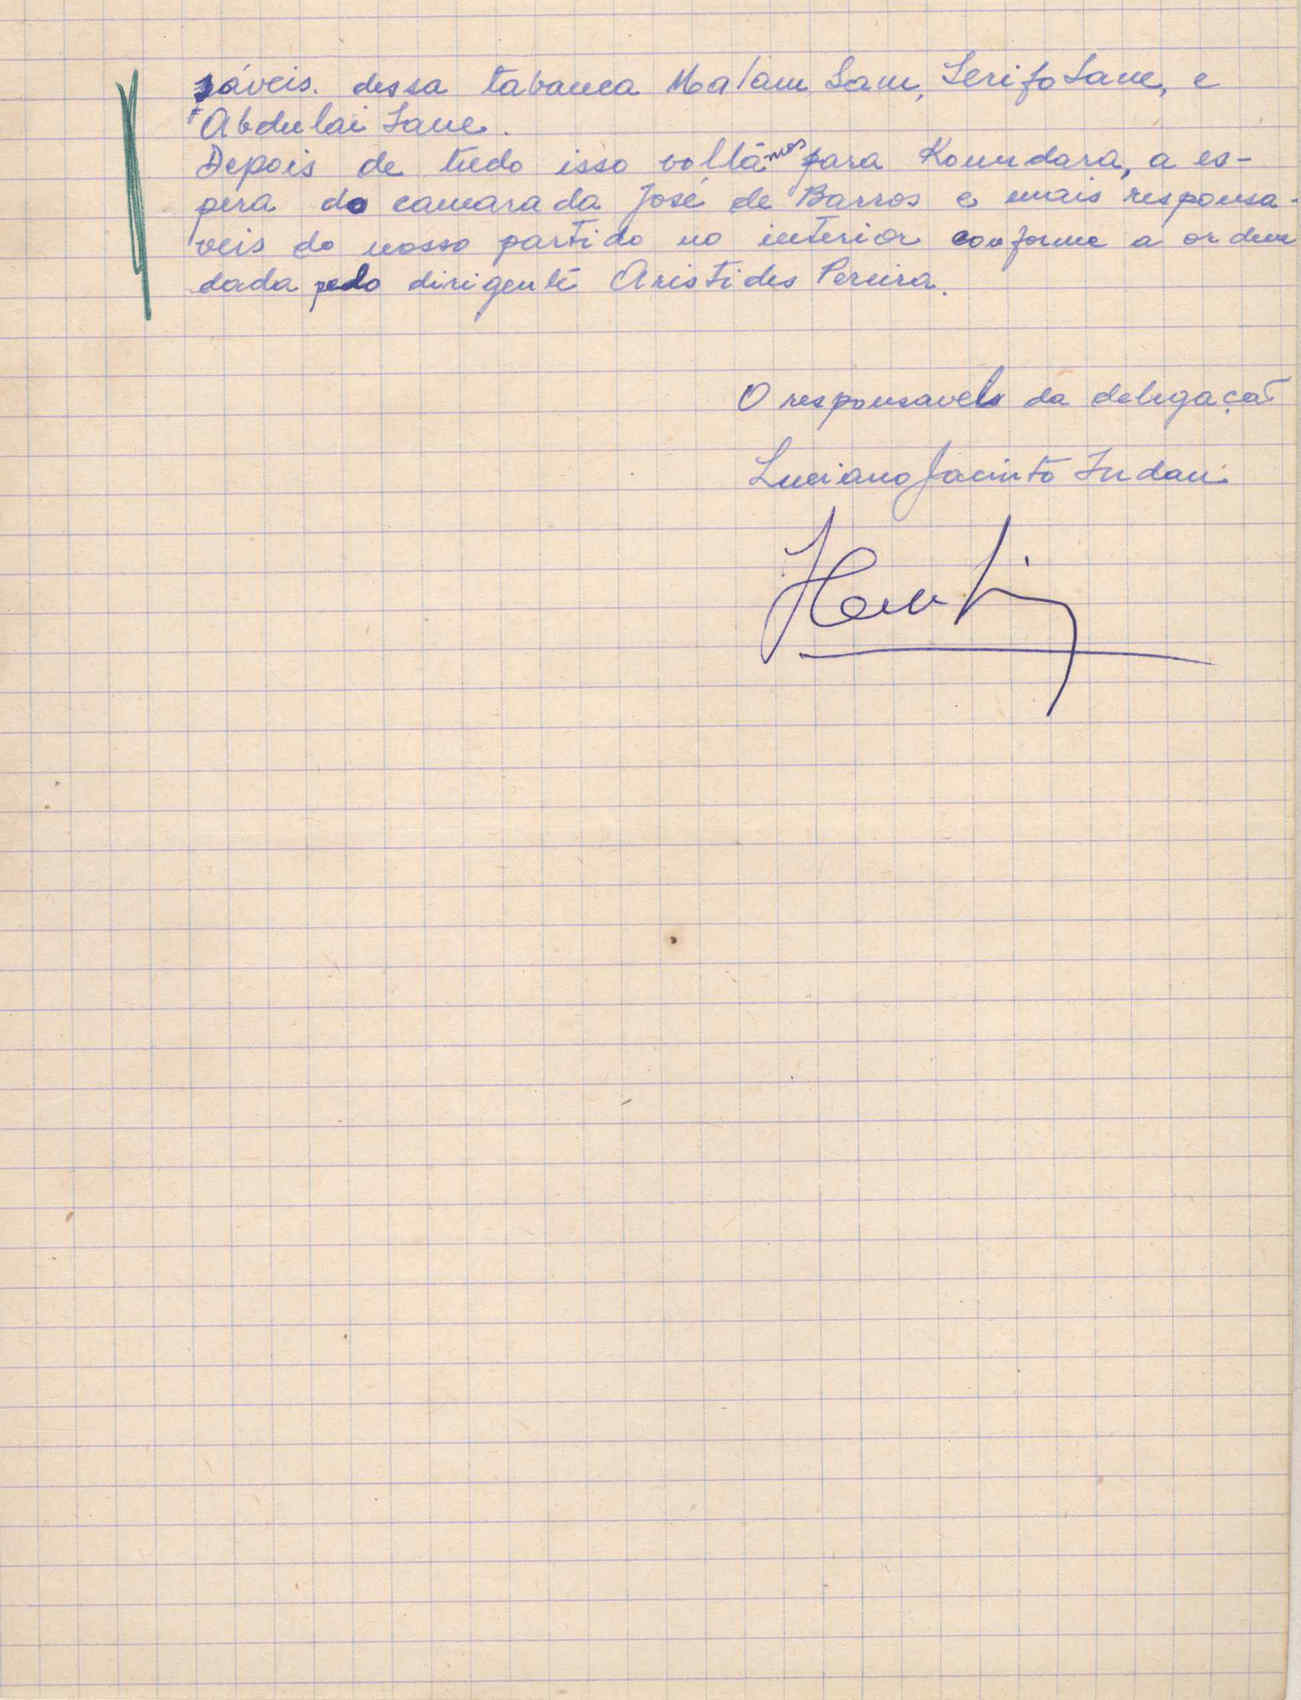 sáveis. dessa tabanca Malam Sam, Serifo Sane, e
Abdulai Sane.
Depois de tudo isso voltámos para Koundara, a es-
pera do camarada José de Barros e mais responsa-
veis do nosso partido no interior conforme a ordem
dada pelo dirigente Aristides Pereira.
O responsavel da delegação
Luciano Jacinto Indani